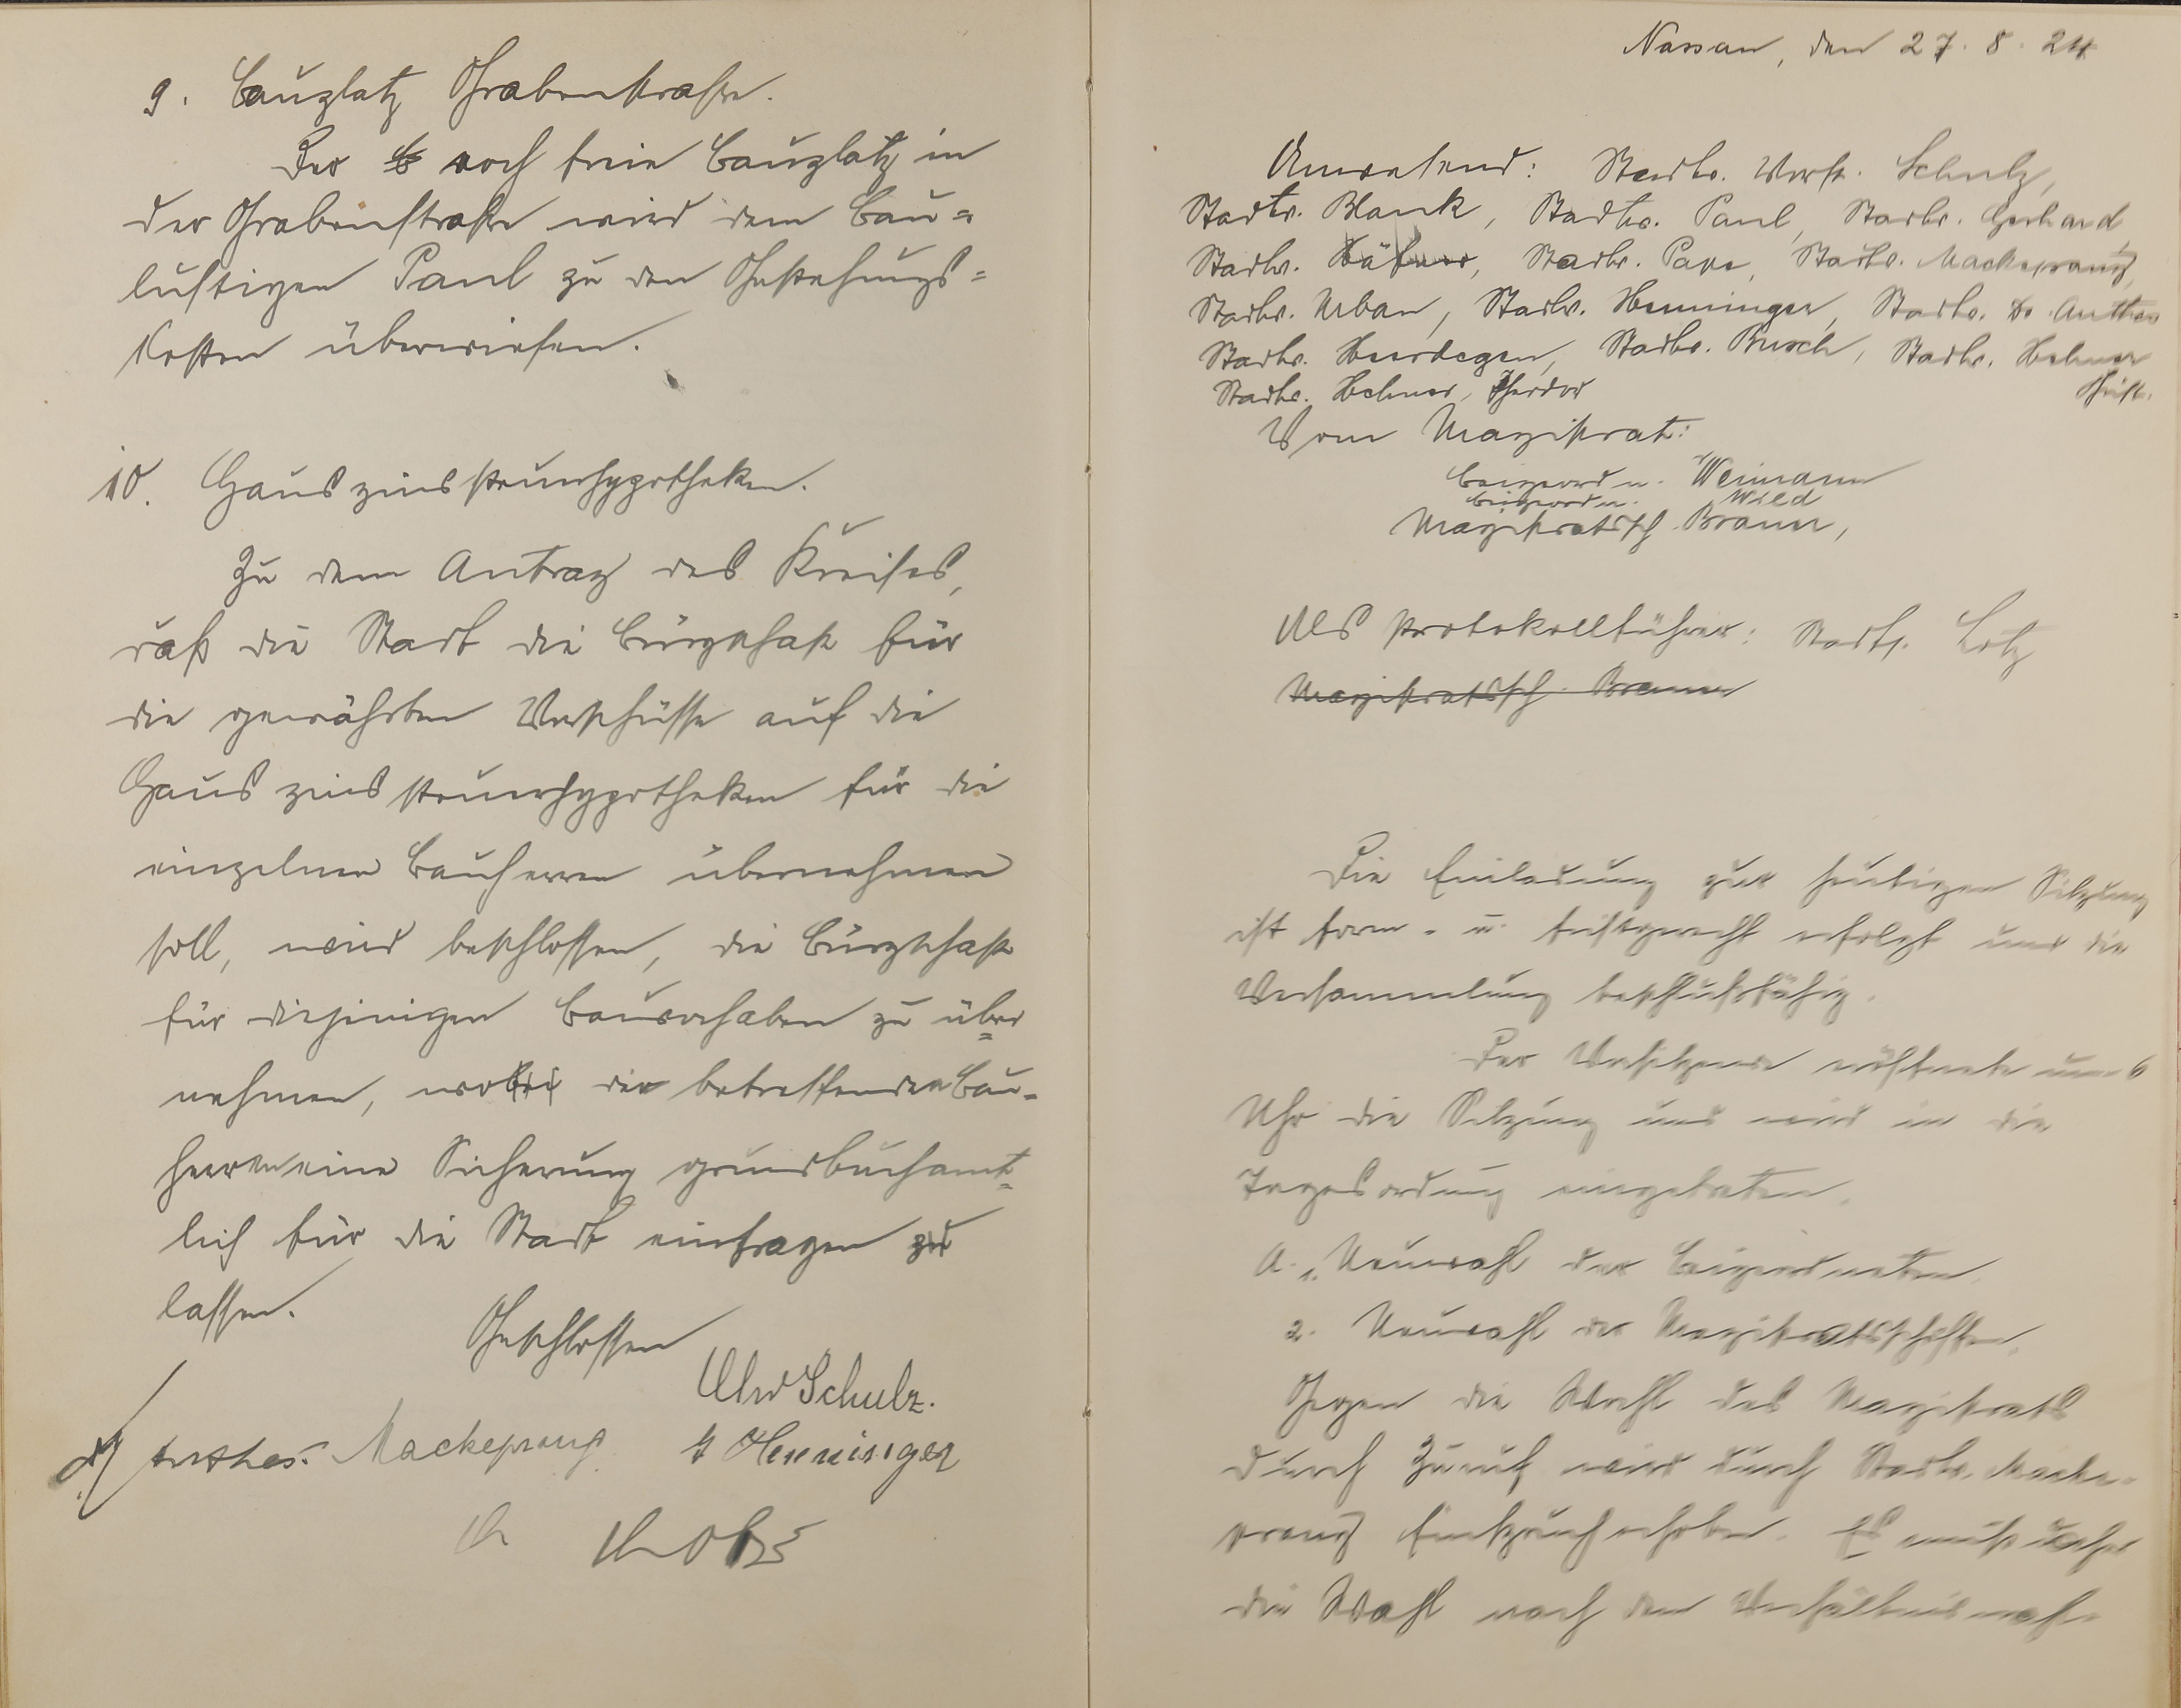 9. Bauplatz Grabenstraße.
Der noch freie Bauplatz in
der Grabenstraße wird dem Bau=
lustigen Paul zu den Gestehungs=
kosten überwiesen.
10. Hauszinssteuerhypotheken.
Zu dem Antrag des Kreises,
daß die Stadt die Bürgschaft für
die gewährten Vorschüsse auf die
Hauszinssteuerhypotheken für die
einzelnen Bauherren übernehmen
soll, wird beschlossen, die Bürgschaft
für diejenigen Bauvorhaben zu über=
nehmen, wobei die betreffenden Bau-
herren eine Sicherung grundbuchamt=
lich für die Stadt eintragen zu
lassen.
Geschlossen
Schulz.
Anthes. Mackeprang Henninger
Nassau, den 27. 8. 24
Anwesend: Stadtv. Vorst. Schulz,
Stadtv. Blank, Stadtv. Paul, Stadtv. Gerhard,
Stadtv. Stadtv. Pape, Stadtv. Mackeprang,
Stadtv. Urban, Stadtv. Henninger, Stadtv. Dr. Anthes
Stadtv. Heerdegen, Stadtv. Busch, Stadtv. Hehner
Stadtv. Hehner, Theodor
Vom Magistrat:
Beigeordn. Weimann
Beigeordn. Wild
Magistratssch. Braun,
Als Protokollführer: Stadts. Lotz
Magistratssch. Braun
Die Einladung zur heutigen Sitzung
ist form- u. fristgerecht erfolgt und die
Versammlung beschlußfähig.
Der Vorsitzende eröffnete um 6
Uhr die Sitzung und wird in die
Tagesordnung eingetreten.
A. 1. Neuwahl der Beigeordneten.
2. Neuwahl der Magistratsschöffen.
Gegen die Wahl des Magistrats
durch Zuruf wird durch Stadtv. Macke-
prang Einspruch erhoben. Es muß daher
die Wahl nach dem Verhältniswah-